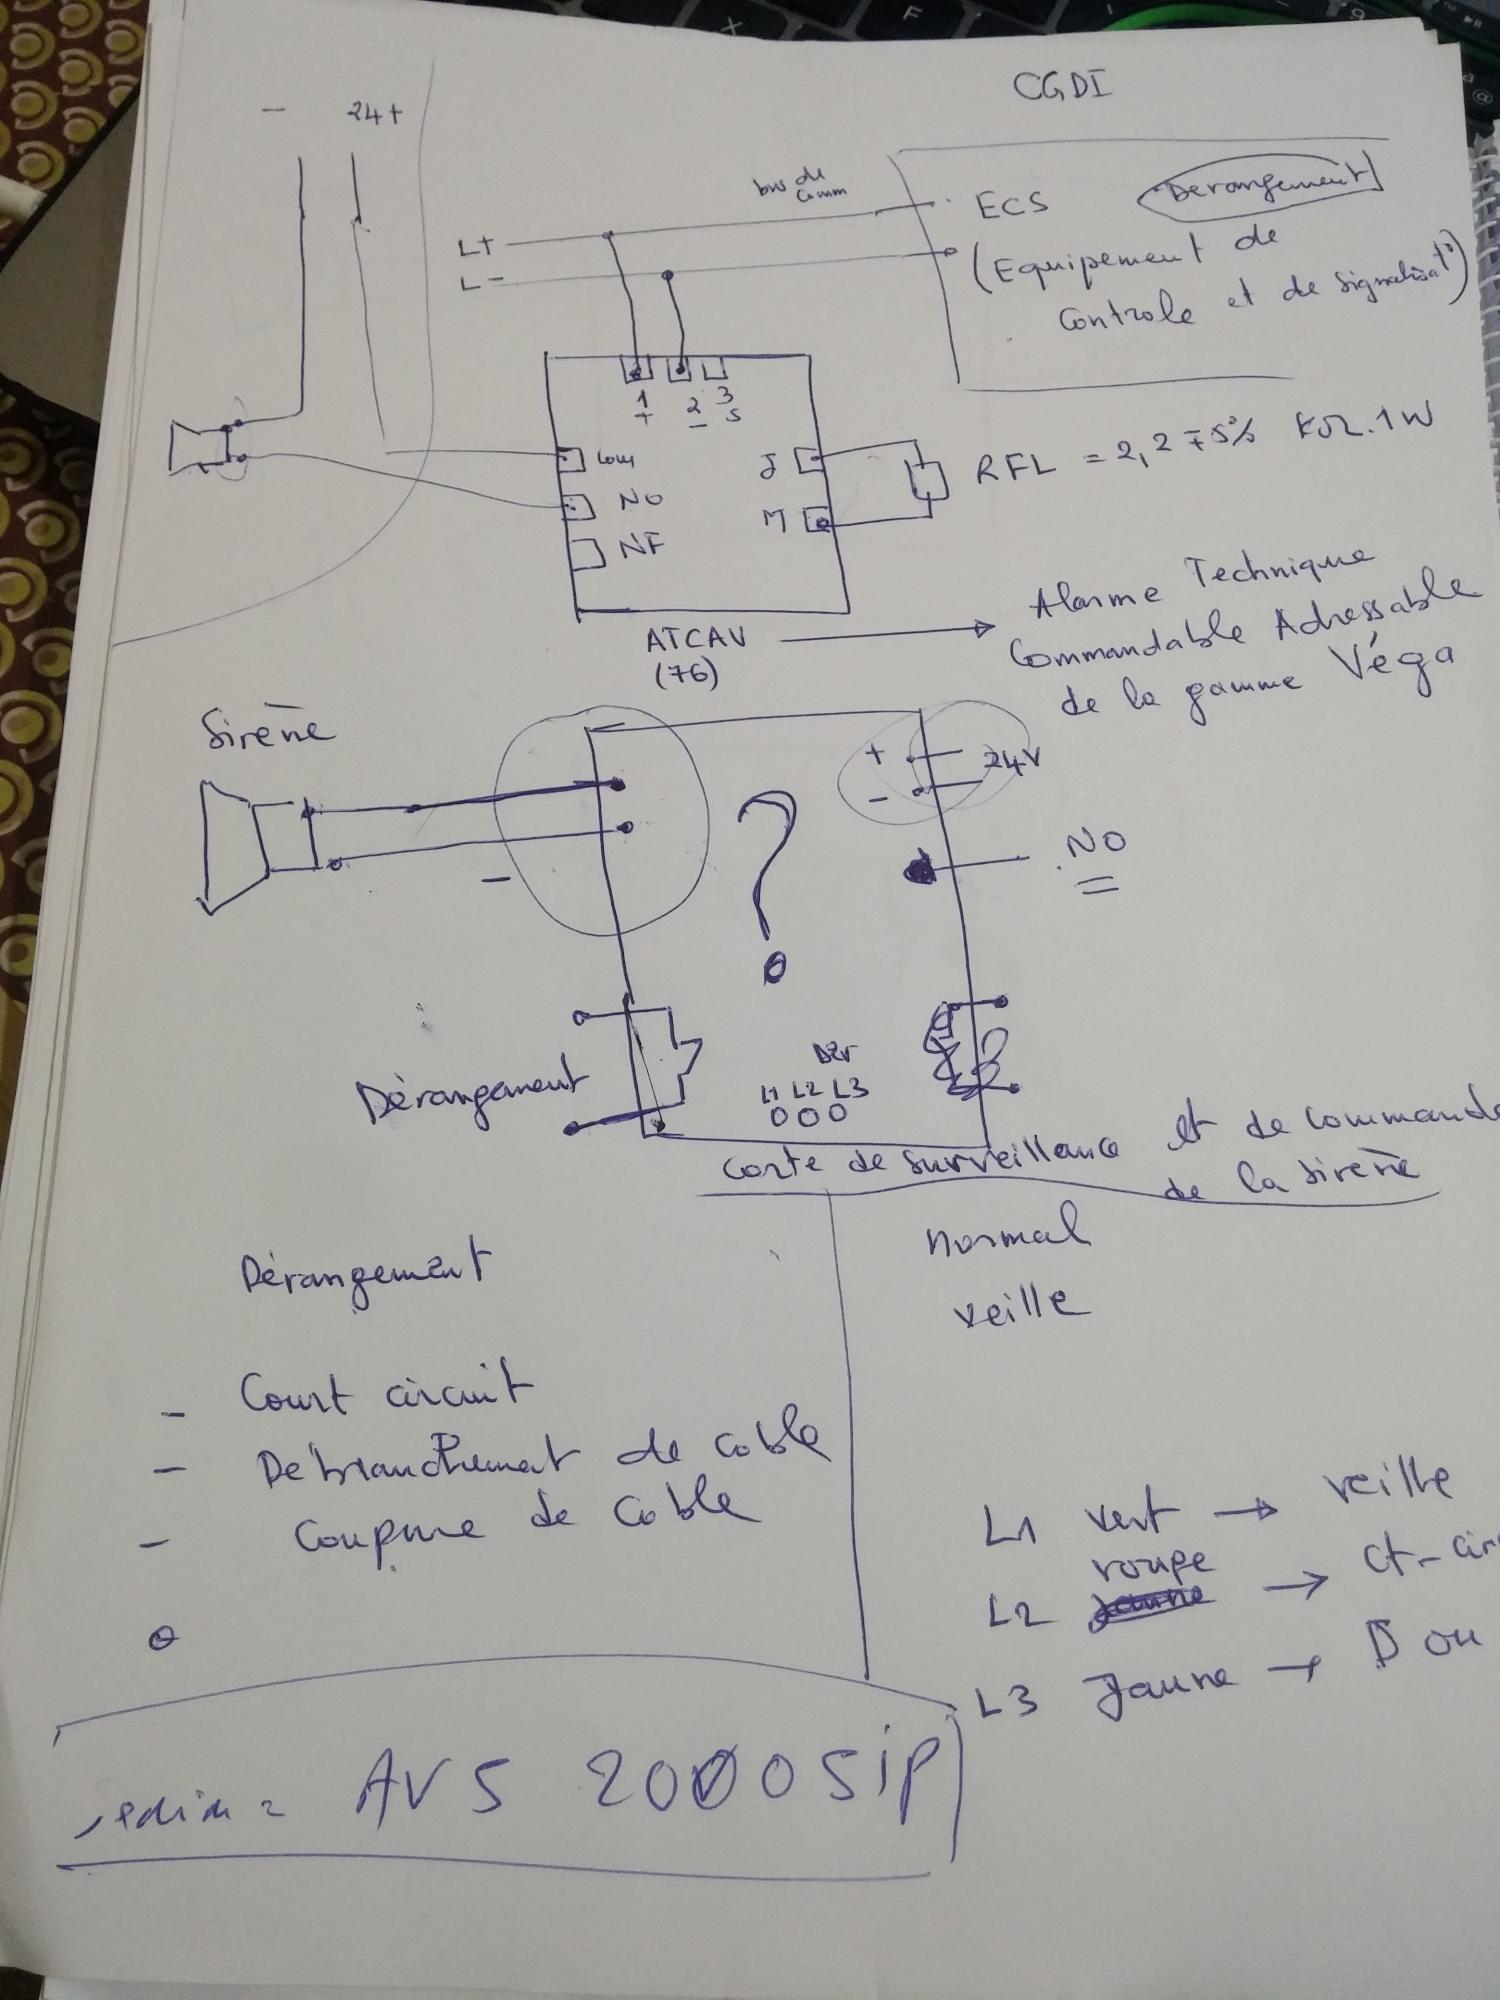 CGDI
- 24+
bus de comm
ECS Dérangement
L+
L-
(Equipement de
Controle et de Signalisat°)
1 2 3
+ - S
Com
NO
NF
J
M
RFL = 2,2 ∓5% KΩ.1W
ATCAV
(76)
Alarme Technique
Commandable Adressable
de la gamme Véga
Sirène
+
-
24V
-
?
NO
Dérangement
Der
L1 L2 L3
Carte de surveillance et de commande
de la sirène
Dérangement
normal
veille
- Court circuit
- Débranchement de cable
- Coupure de Cable
L1 vert → veille
rouge
L2 → Ct-cir
L3 Jaune → D ou
AVS 2000 Sip